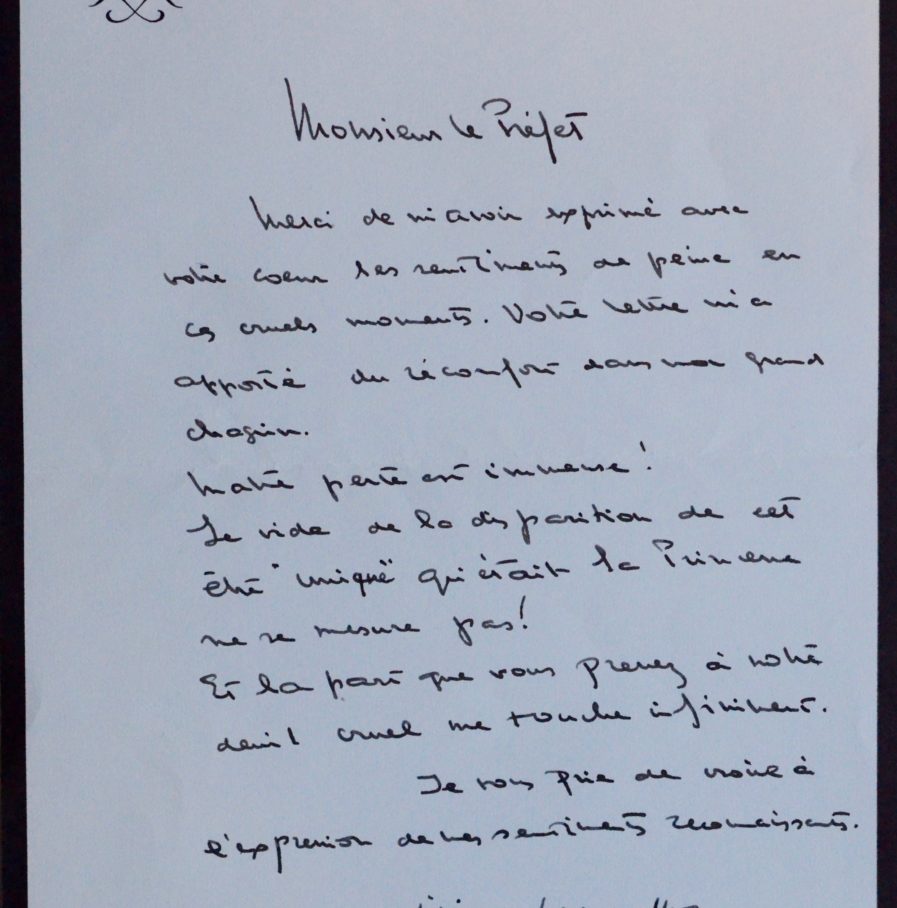 Monsieur le Préfet
Merci de m'avoir exprimé avec
votre coeur les sentiments de peine en
ces cruels moments. Votre lettre m'a
apporté du réconfort dans mon grand
chagrin.
Notre perte est immense !
Le vide de la disparition de cet
être "unique" qu'était la Princesse
ne se mesure pas !
Et la part que vous prenez à notre
deuil cruel me touche infiniment.
Je vous prie de croire à
l'expression de mes sentiments reconnaissants.